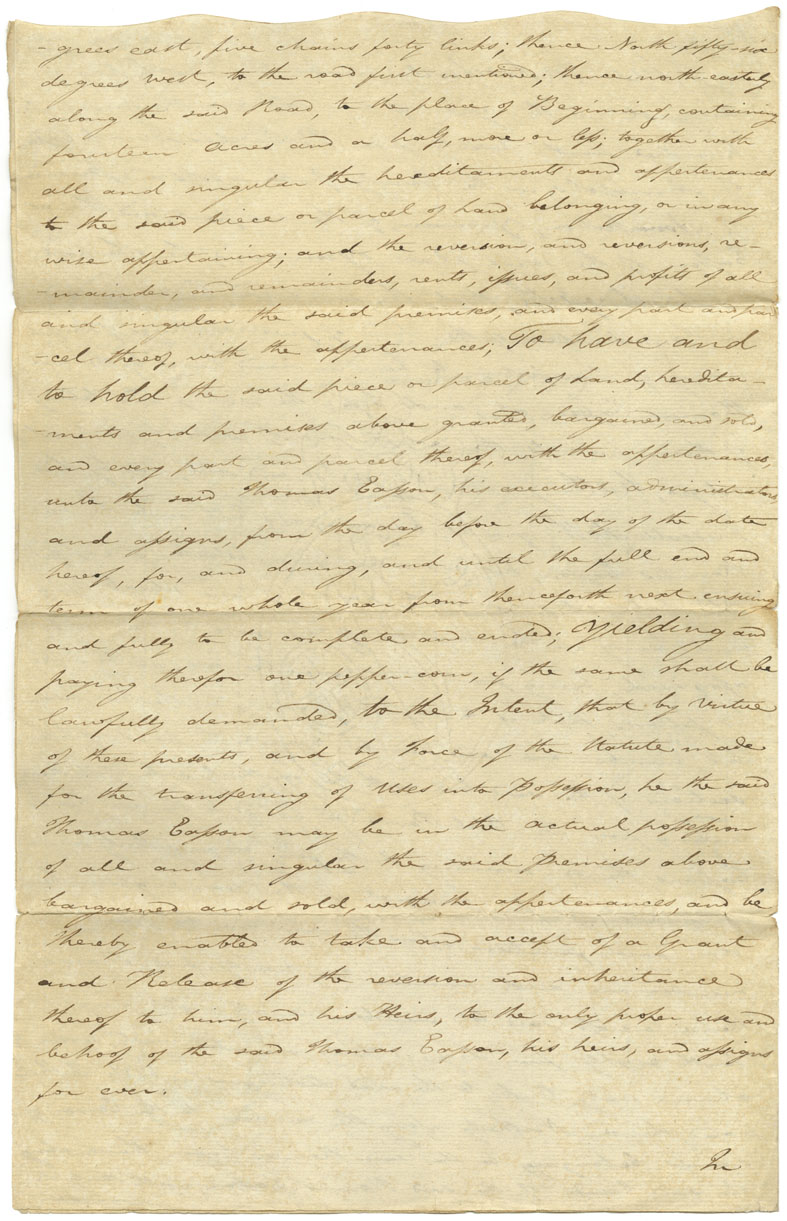 -grees east, five chains forty links; thence North fifty-six
degrees west, to the road first mentioned; thence north-easterly
along the said Road, to the place of Beginning, containing
fourteen Acres and a half, more or less; together with
all and singular the hereditaments and appertenances
to the said piece or parcel of Land belonging, or in any
wise appertaining; and the reversion, and reversions, re-
-mainder, and remainders, rents, issues, and profits of all
and singular the said premises, and every part and par
-cel thereof, with the appertenances; To have and
to hold the said piece or parcel of Land, heredita-
-ments and premises above granted, bargained, and sold,
and every part and parcel thereof, with the appertenances,
unto the said Thomas Easson, his executors, administrators,
and assigns, from the day before the day of the date
hereof, for, and during, and until the full end and
term of one whole year from thenceforth next ensuing
and fully to be complete and ended; Yielding and
paying therefor one pepper-corn, if the same shall be
lawfully demanded, to the Intent, that by Virtue
of these presents, and by Force of the Statute made
for the transferring of Uses into Possession, he the said
Thomas Easson may be in the actual possession
of all and singular the said Premises above
bargained and sold, with the appertenances, and be
thereby enabled to take and accept of a Grant
and Release of the reversion and inheritance
thereof to him, and his Heirs, to the only proper use and
behoof of the said Thomas Easson, his heirs, and assigns
for ever.
In